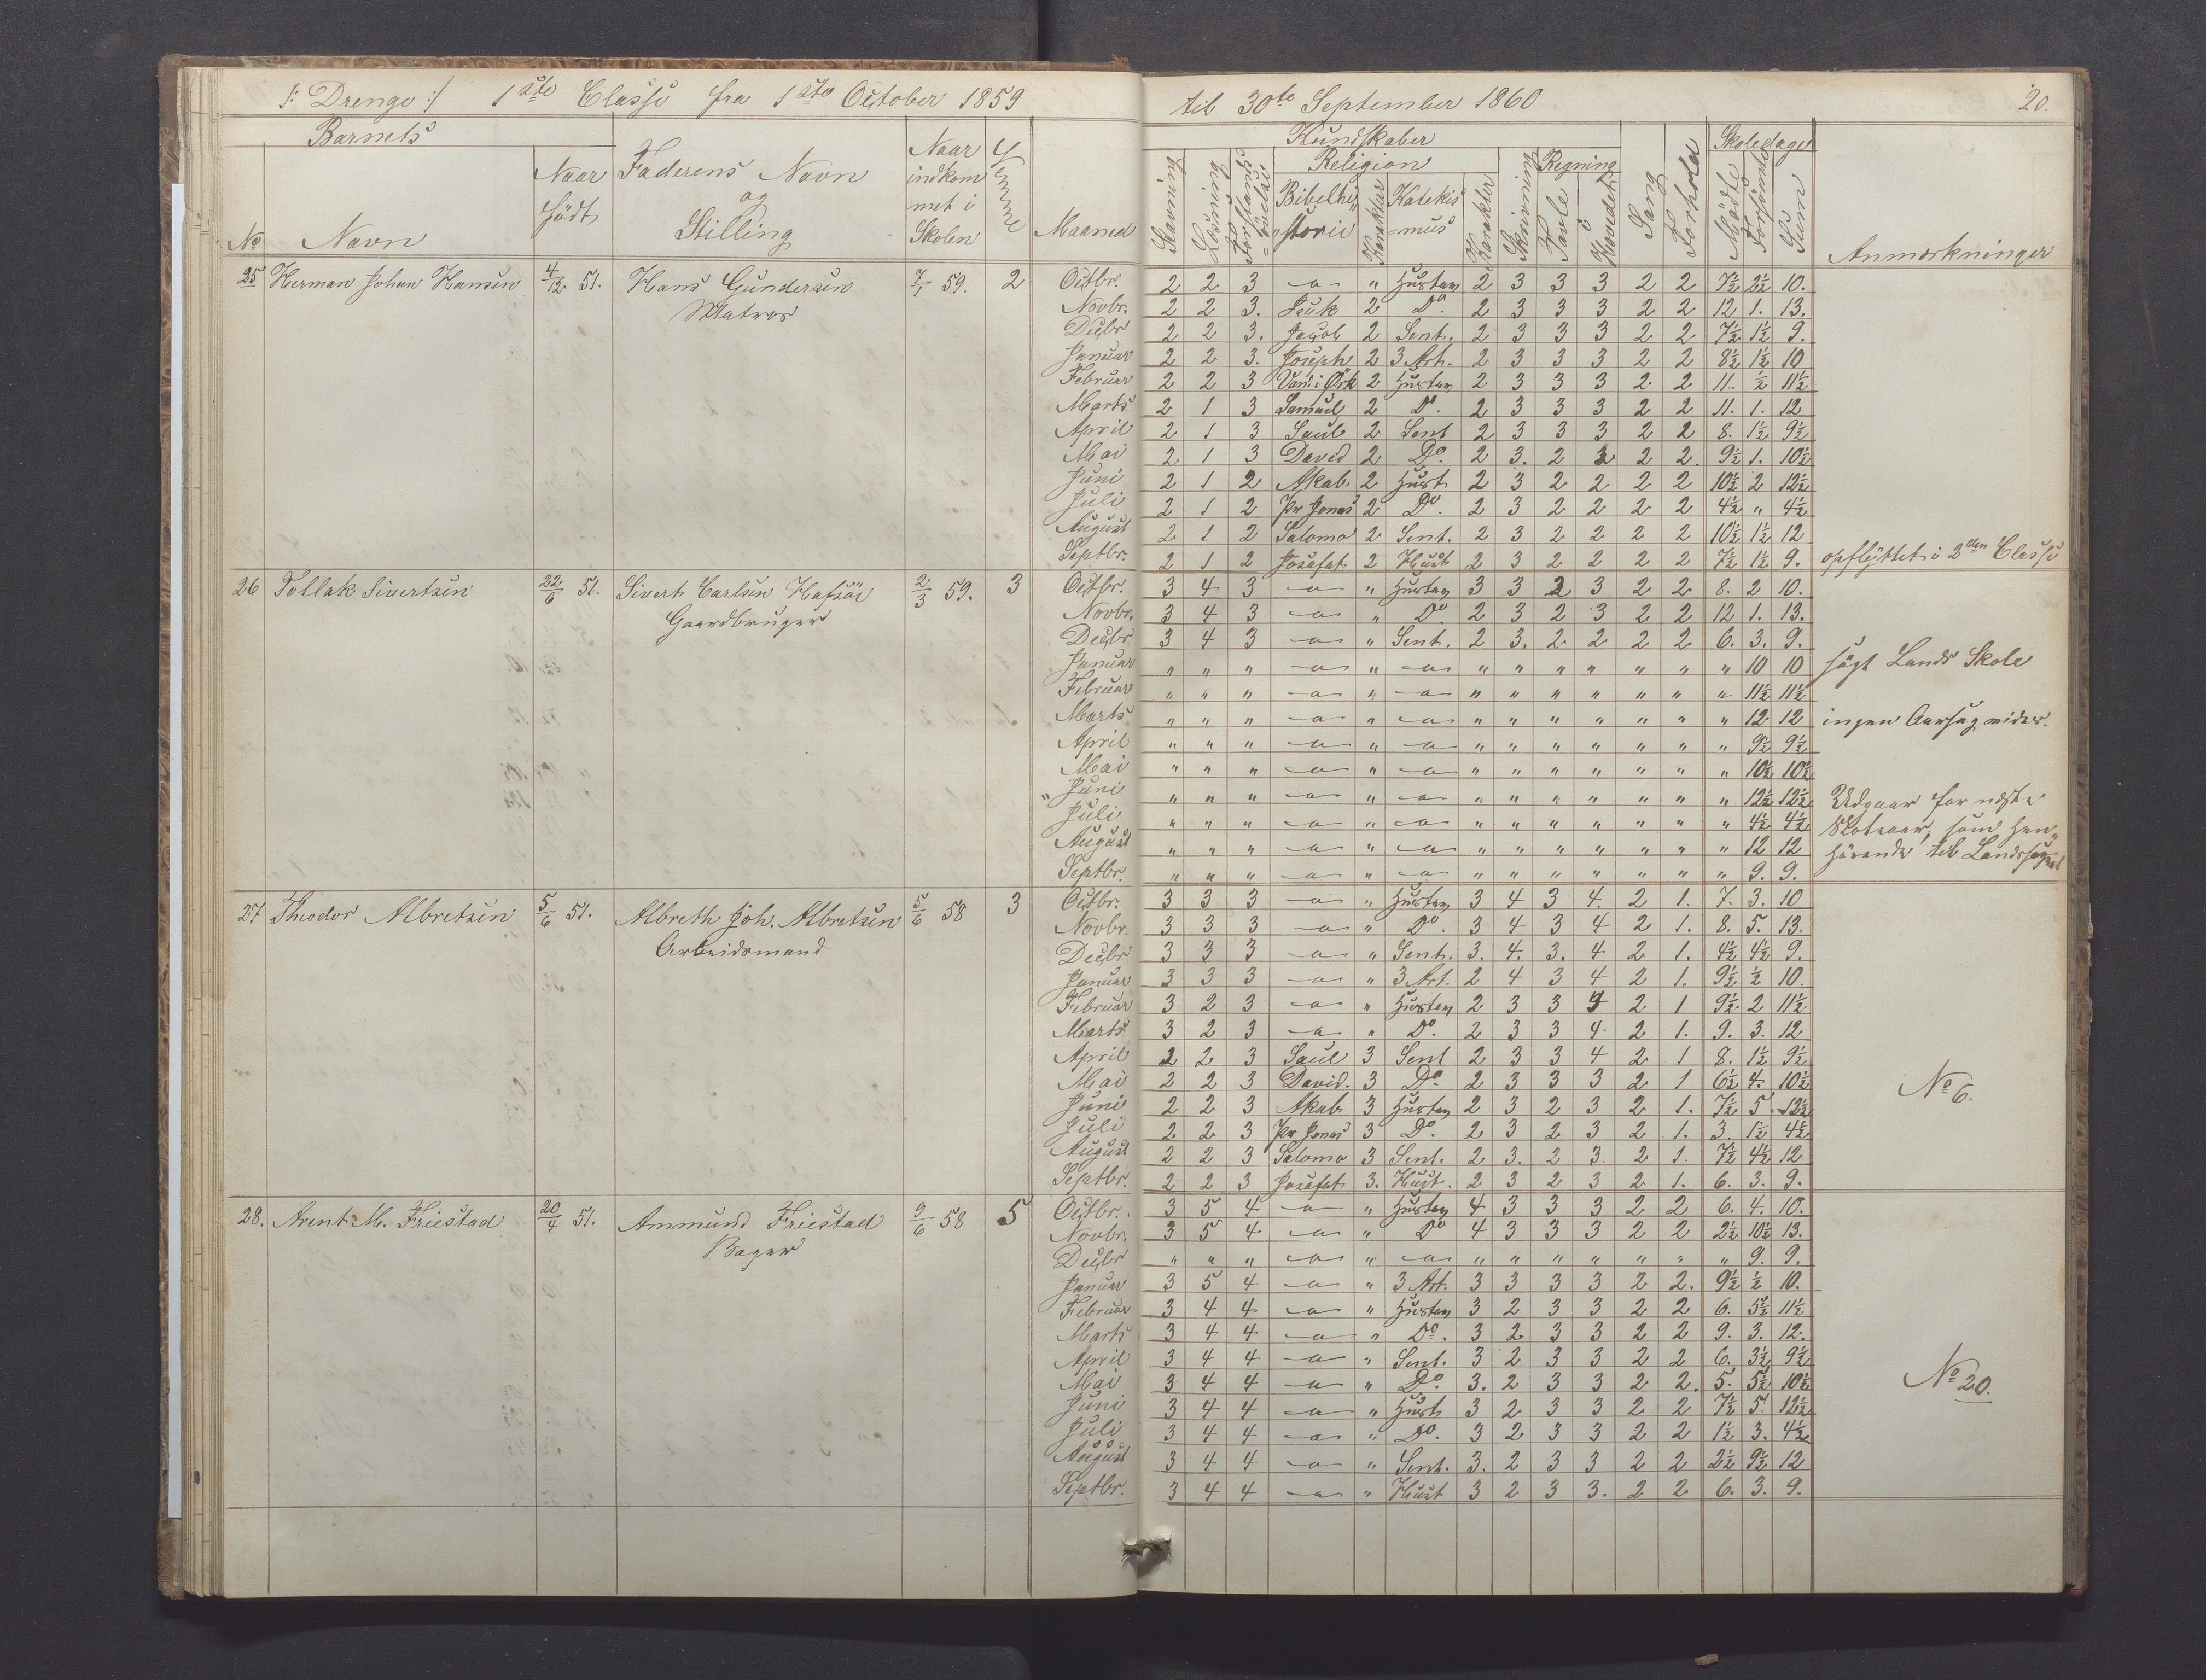 /: Drenge :/ 1ste Classe fra 1ste October 1859
til 30te September 1860
20.
Barnets
No
Navn
Naar
födt
Faderens Navn
og
Stilling
Naar
indkom
met i
Skolen
Evne
Maaned
Kundskaber
Religion
Regning
Skoledage
Stavning
Læsning
Forstands
=övelse
Bibelhi„
„storie
Karakter
Katekis
=mus
Karakter
Skrivning
Tavle
Hovedet
Sang
Forhold
Mödte
Forsömte
Sum
Anmærkninger
25 Herman Johan Hansen 4/12 51. Hans Gundersen 7/1 59. 2 Octbr. 2 2 3 — " Husten 2 3 3 3 2 2 7½ 2½ 10.
Matros Novbr. 2 2 3. Isak 2 Do. 2 3 3 3 2 2 12 1. 13.
Decbr 2 2 3. Jacob 2 Sent. 2 3 3 3 2 2 7½ 1½ 9.
Januar 2 2 3. Joseph 2 3 Art. 2 3 3 3 2 2 8½ 1½ 10
Februar 2 2 3 Van. i Örk 2 Husten 2 3 3 3 2 2 11. ½ 11½
Marts 2 1 3 Samuel 2 Do. 2 3 3 3 2 2 11. 1. 12
April 2 1 3 Saul 2 Sent 2 3 3 3 2 2 8. 1½ 9½
Mai 2 1 3 David 2 Do. 2 3. 2 3 2 2. 9½ 1. 10½
Juni 2 1 2 Akab. 2 Hust 2 3 2 2 2 2 10½ 2 12½
Juli 2 1 2 Pr Jonas 2 Do. 2 3 2 2 2 2 4½ " 4½
August 2 1 2 Salomo 2 Sent. 2 3 2 2 2 2 10½ 1½ 12
Septbr. 2 1 2 Josafat 2 Hust 2 3 2 2 2 2 7½ 1½ 9. opflyttet i 2den Classe
26 Tollak Sivertsen 22/6 51. Sivert Carlsen Hafsöe 2/3 59. 3 Octbr. 3 4 3 — " Husten 3 3 2 3 2 2 8. 2 10.
Gaardbruger Novbr. 3 4 3 — " Do 2 3 2 3 2 2 12 1. 13.
Decbr 3 4 3 — " Sent. 2 3. 2 2 2 2 6. 3. 9.
Januar " " " — " — " " " " " " " 10 10 sögt Lands Skole
Februar " " " — " — " " " " " " " 11½ 11½
Marts " " " — " — " " " " " " " 12 12 ingen Aarsag
April " " " — " — " " " " " " " 9½ 9½
Mai " " " — " — " " " " " " " 10½ 10½
" Juni " " " — " — " " " " " " " 12½ 12½ Udgaar for næste
Juli " " " — " — " " " " " " " 4½ 4½ Skoleaar, som hen„
August " " " — " — " " " " " " " 12 12 hörende til Landsognet
Septbr. " " " — " — " " " " " " " 9. 9.
27 Theodor Albretsen 5/6 51. Albreth Joh. Albretsen 5/6 58 3 Octbr. 3 3 3 — " Husten 3 4 3 4. 2 1. 7. 3. 10
Arbeidsmand Novbr. 3 3 3 — " Do. 3 4 3 4 2 1. 8. 5. 13.
Decbr 3 3 3 — " Sent. 3. 4. 3. 4 2 1. 4½ 4½ 9.
Januar 3 3 3 — " 3 Art. 2 4 3 4 2 1. 9½ ½ 10.
Februar 3 2 3 — " Husten 2 3 3 4 2 1 9½ 2 11½
Marts 3 2 3 — " Do. 2 3 3 4. 2 1. 9. 3. 12
April 2 2 3 Saul 3 Sent 2 3 3 4 2 1 8. 1½ 9½
Mai 2 2 3 David. 3 Do. 2 3 3 3 2 1 6½ 4. 10½ No 6.
Juni 2 2 3 Akab 3 Husten 2 3 2 3 2 1. 7½ 5. 12½
Juli 2 2 3 Pr Jonas 3 Do. 2 3 2 3 2 1. 3. 1½ 4½
August 2 2 3 Salomo 3 Sent. 2 3. 2 3. 2 1. 7½ 4½ 12
Septbr. 2 2 3 Josafat 3. Hust. 2 3 2 3 2 1. 6. 3. 9.
28. Arent M. Friestad 20/4 51. Ammund Friestad 9/6 58 5 Octbr. 3 5 4 — " Husten 4 3 3 3 2 2 6. 4. 10.
Bager Novbr. 3 5 4 — " Do 4 3 3 3 2 2 2½ 10½ 13.
Decbr " " " — " — " " " " " " " 9. 9.
Januar 3 5 4 — " 3 Art. 3 3 3 3 2 2. 9½ ½ 10.
Februar 3 4 4 — " Husten 3 2 3 3 2 2 6. 5½ 11½
Marts 3 4 4 — " Do. 3 2 3 3 2 2 9. 3. 12.
April 3 4 4 — " Sent. 3 2 3 3 2 2 6. 3½ 9½
Mai 3 4 4 — " Do. 3. 2 3 3 2 2. 5. 5½ 10½ No 20.
Juni 3 4 4 — " Hust 3 2 3 3 2 2 7½ 5 12½
Juli 3 4 4 — " Do. 3 2 3 3 2 2 1½ 3. 4½
August 3 4 4 — " Sent. 3. 2 3 3 2 2 2½ 9½ 12
Septbr. 3 4 4 — " Hust 3 2 3 3. 2 2 6. 3. 9.